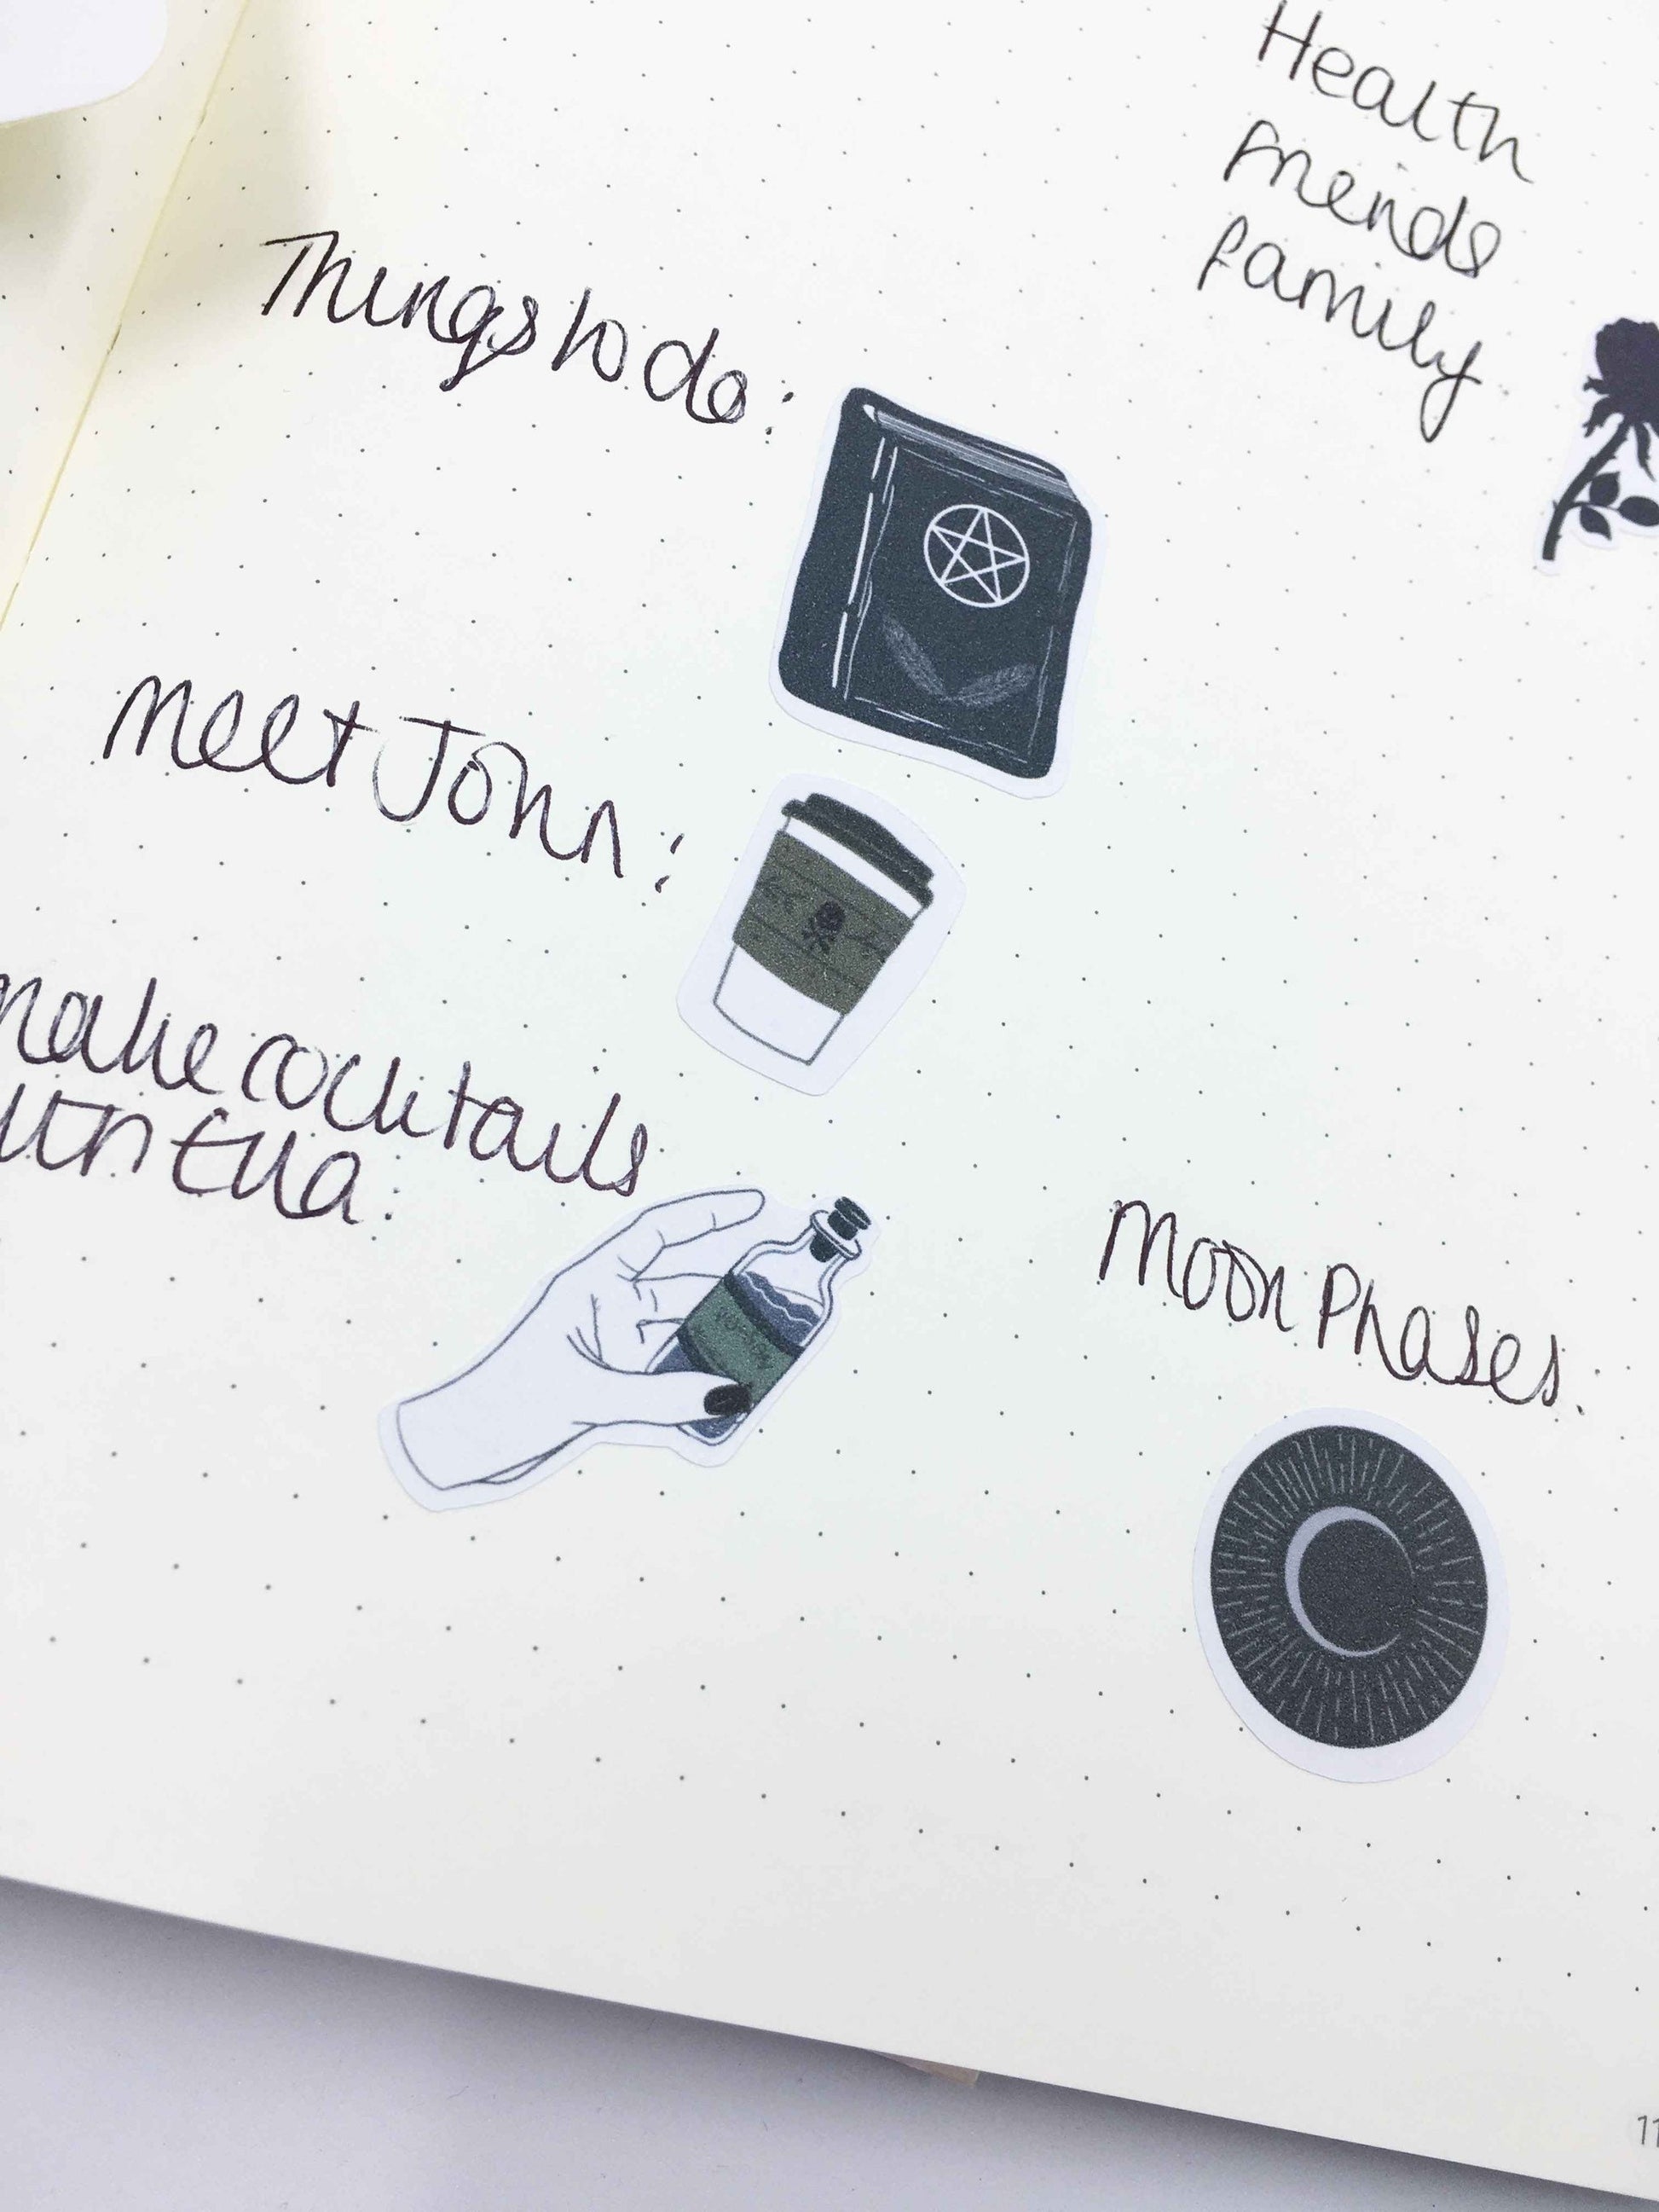 Health
friends
family
Things to do:
Meet John:
make cocktails
with Ella:
Moon Phases:
11